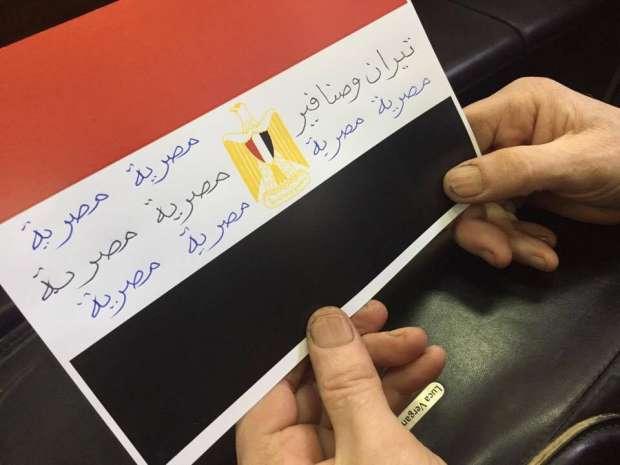 تيران وصنافير
مصرية مصرية
مصرية مصرية
مصرية مصرية
مصرية مصرية
Luca Vergan